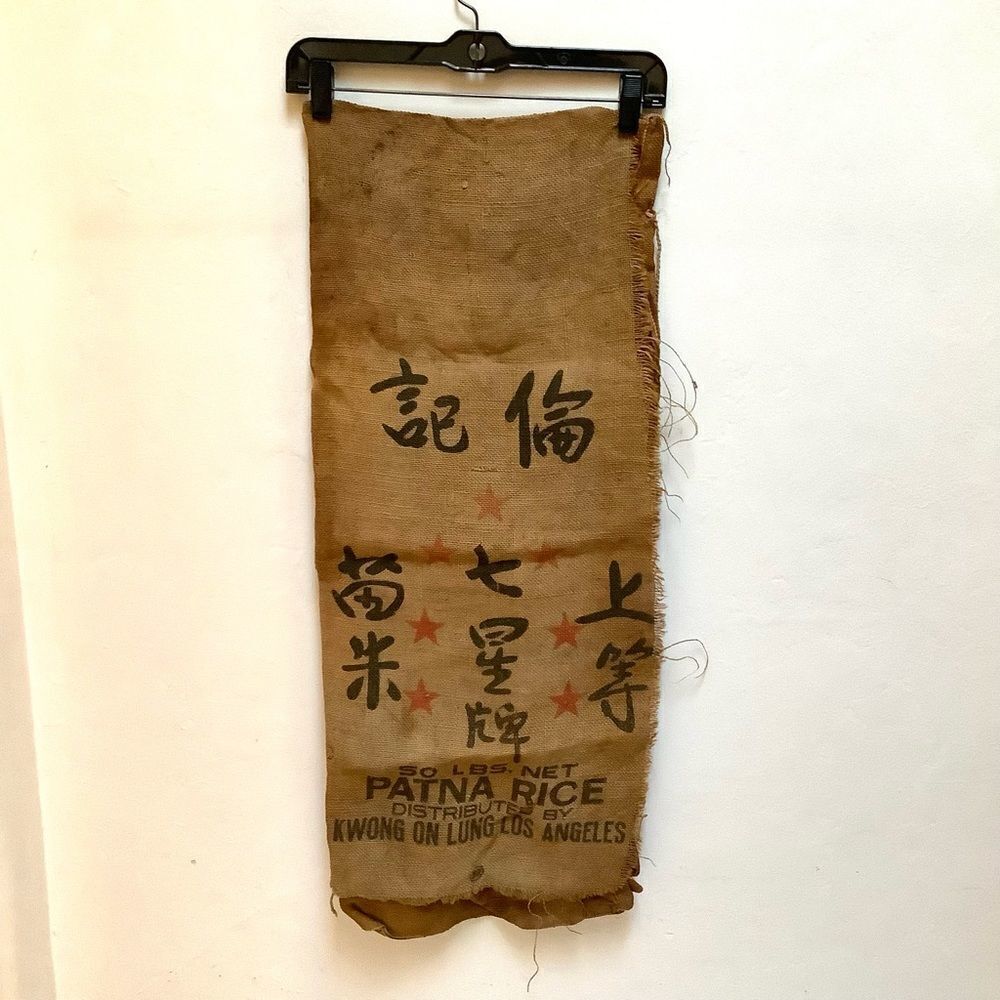 倫記
上等
七星牌
苗米
50 LBS. NET
PATNA RICE
DISTRIBUTED BY
KWONG ON LUNG LOS ANGELES